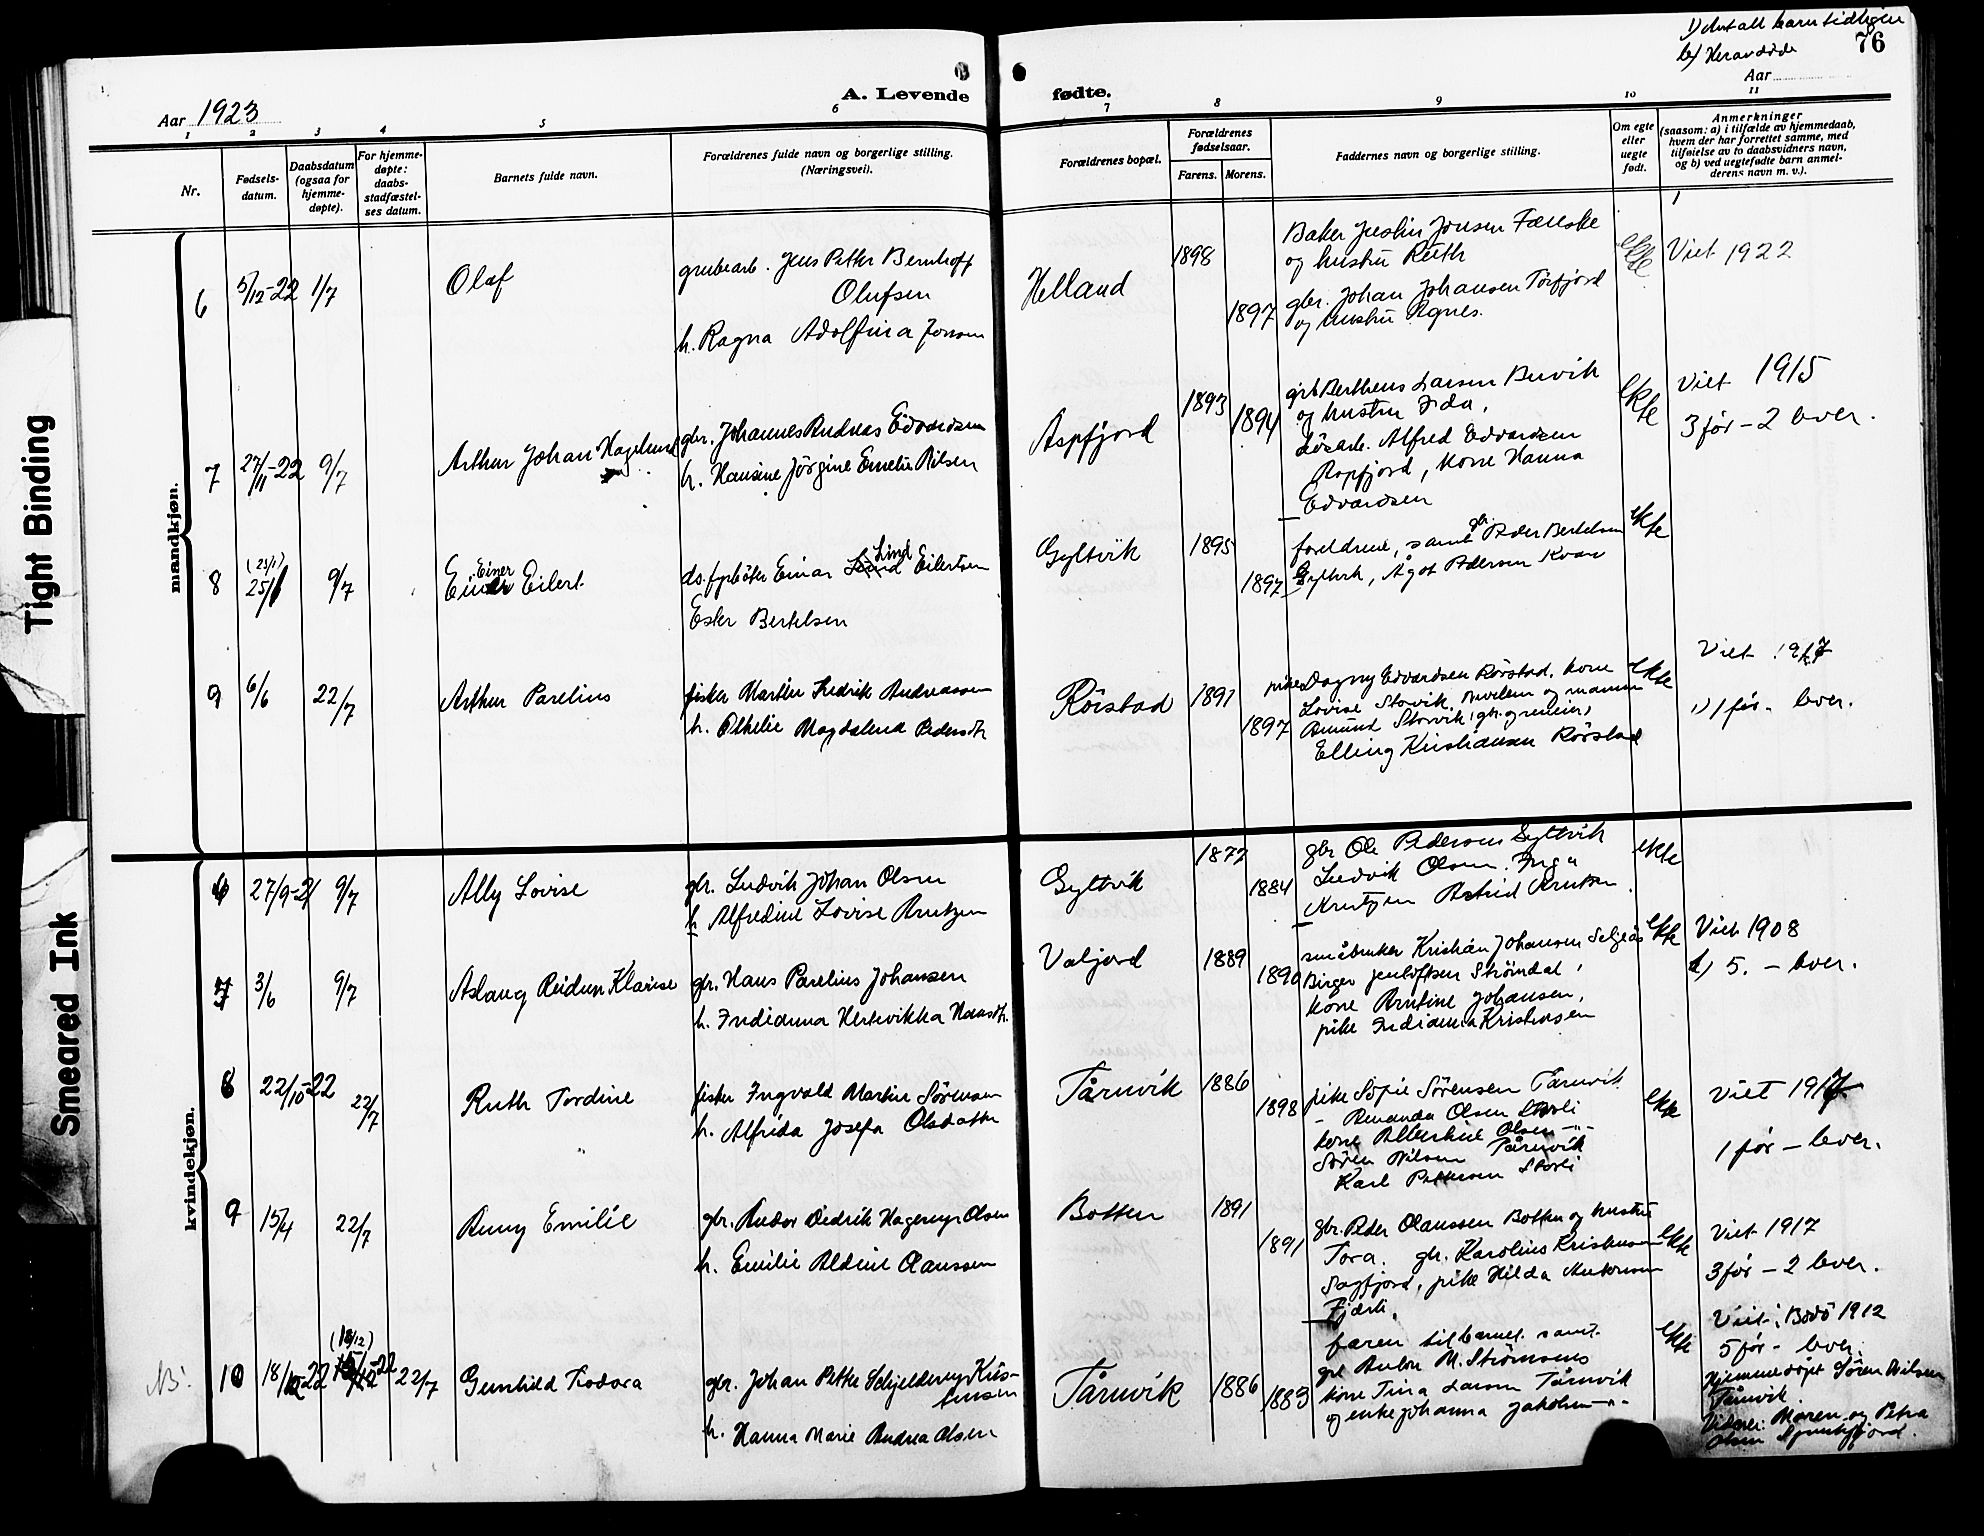 1) Antall barn tidligere
b) Herav døde
76
Aar
Aar 1923
A. Levende fødte.
1 2 3 4 5 6 7 8 9 10 11
Nr.
Fødsels-
datum.
Daabsdatum
(ogsaa for
hjemme-
døpte).
For hjemme-
døpte:
daabs-
stadfæstel-
ses datum.
Barnets fulde navn.
Forældrenes fulde navn og borgerlige stilling.
(Næringsvei).
Forældrenes bopæl.
Forældrenes
fødselsaar.
Farens. Morens.
Faddernes navn og borgerlige stilling.
Om egte
eller
uegte
født.
Anmerkninger
(saasom: a) i tilfælde av hjemmedaab,
hvem der har forrettet samme, med
tilføielse av to daabsvidners navn,
og b) ved uegtefødte barn anmel-
derens navn m. v.).
Tight Binding
Smeared Ink
mandkjøn.
6 5/12-22 1/7 Olaf
grubearb. Jens Petter Bernhoff
Olufsen
h. Ragna Adolfina Jonsen
Helland 1898 1897
Baker Justin Jonsen Fauske
og hustru Ruth
gbr. Johan Johansen Torfjord
og hustru Agnes.
ekte
Viet 1922
7 27/11-22 9/7 Arthur Johan Hagelund
gbr. Johannes Andreas Edvardsen
h. Hansine Jørgine Emelie Nilsen
Aspfjord 1893 1894
grb Berthens Larsen Bervik
og hustru Ida.
Løsarb. Alfred Edvardsen
Aspfjord, kone Hanna
Edvardsen
ekte
Viet 1915
3 før - 2 lever.
8 (25/1) 25/1 9/7 Einer Eilert
Einar Lind Eilertsen
Ester Bertelsen
Gyltvik 1895 1897
foreldrene, samt gbr Peder Bertelsen
Gyltvik, Ågot Pedersen Kvar
ekte
9 6/6 22/7 Arthur Parelius
fisker Martin Fredrik Andreassen
h. Othelie Magdalena Pedersdtr
Rørstad 1891 1897
pike Dagny Edvardsen Rørstad, kone
Lovise Storvik, og mannen
Amund Storvik,
Elling Kristiansen Rørstad
ekte
Viet 1917
1) 1 før - lever.
kvindekjøn.
6 27/9-21 9/7 Ally Lovise
gbr. Ludvik Johan Olsen
h. Alfredine Lovise Arntzen
Gyltvik 1877 1884
gbr Ole Pedersen Gyltvik
Ludvik Olsen. Inga
Arntzen Astrid Arntsen
ekte
7 3/6 9/7 Aslaug Reidun Klarise
gbr. Hans Parelius Johansen
h. Indianna Hertevikka Hansdtr.
Valjord 1889 1890
småbruker Kristian Johansen Seljeås
Birger Jentoftsen Strømdal,
kone Arntine Johansen,
pike Indianna Kristensen
ekte
Viet 1908
1) 5. - lever.
8 22/10-22 22/7 Ruth Tordine
fisker Ingvald Martin Sørensen
h. Alfrida Josefa Olsdatter
Tårnvik 1886 1898
pike Sofie Sørensen Tårnvik
- Amanda Olsen Storli
kone Albertine Olsen -"-
Søren Nilsen Tårnvik
Karl Pettersen Storli
ekte
Viet 1917
1 før - lever.
9 15/4 22/7 Anny Emilie
gbr. Andor Didrik Hagerup Olsen
h. Emilie Aldine Olaussen
Botten 1891 1891
gbr. Peder Olaussen Botten og hustru
Tora. gbr. Karolius Kristensen
Sagfjord, pike Hilda Antonsen
Fjærli.
ekte
Viet 1917
3 før - 2 lever.
NB! 10 18/12-22 (18/12) 22/7 Gunhild Teodora
gbr. Johan Petter Schjelderup Kris-
tensen
h. Hanna Marie Andrea Olsen
Tårnvik 1886 1883
faren til barnet samt
gbr Anton M. Strømsnes
kone Tina Larsen Tårnvik
og enke Johanna Jakobsen -"-
ekte
Viet i Bodø 1912
5 før - lever.
Hjemmedøpt Søren Nilsen
Tårnvik
Vidner: Maren og Petra
Olsen